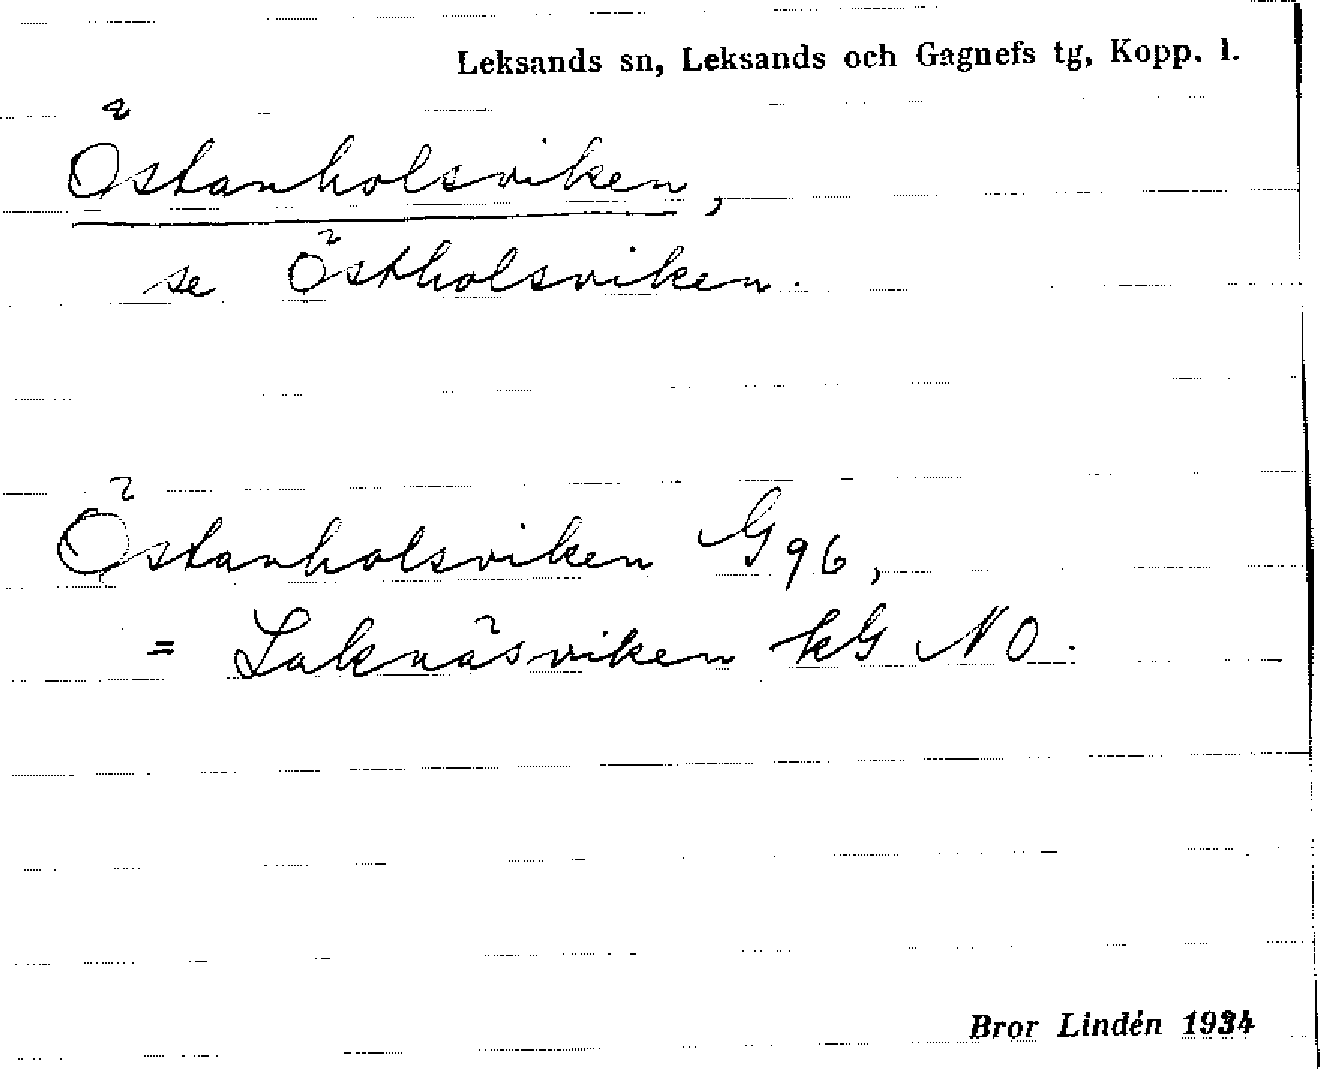 Leksands sn, Leksands och Gagnefs tg, Kopp. l.
Östanholsviken,
se Östholsviken.
Östanholsviken G 96,
= Laknäsviken kG NO.
Bror Lindén 1934